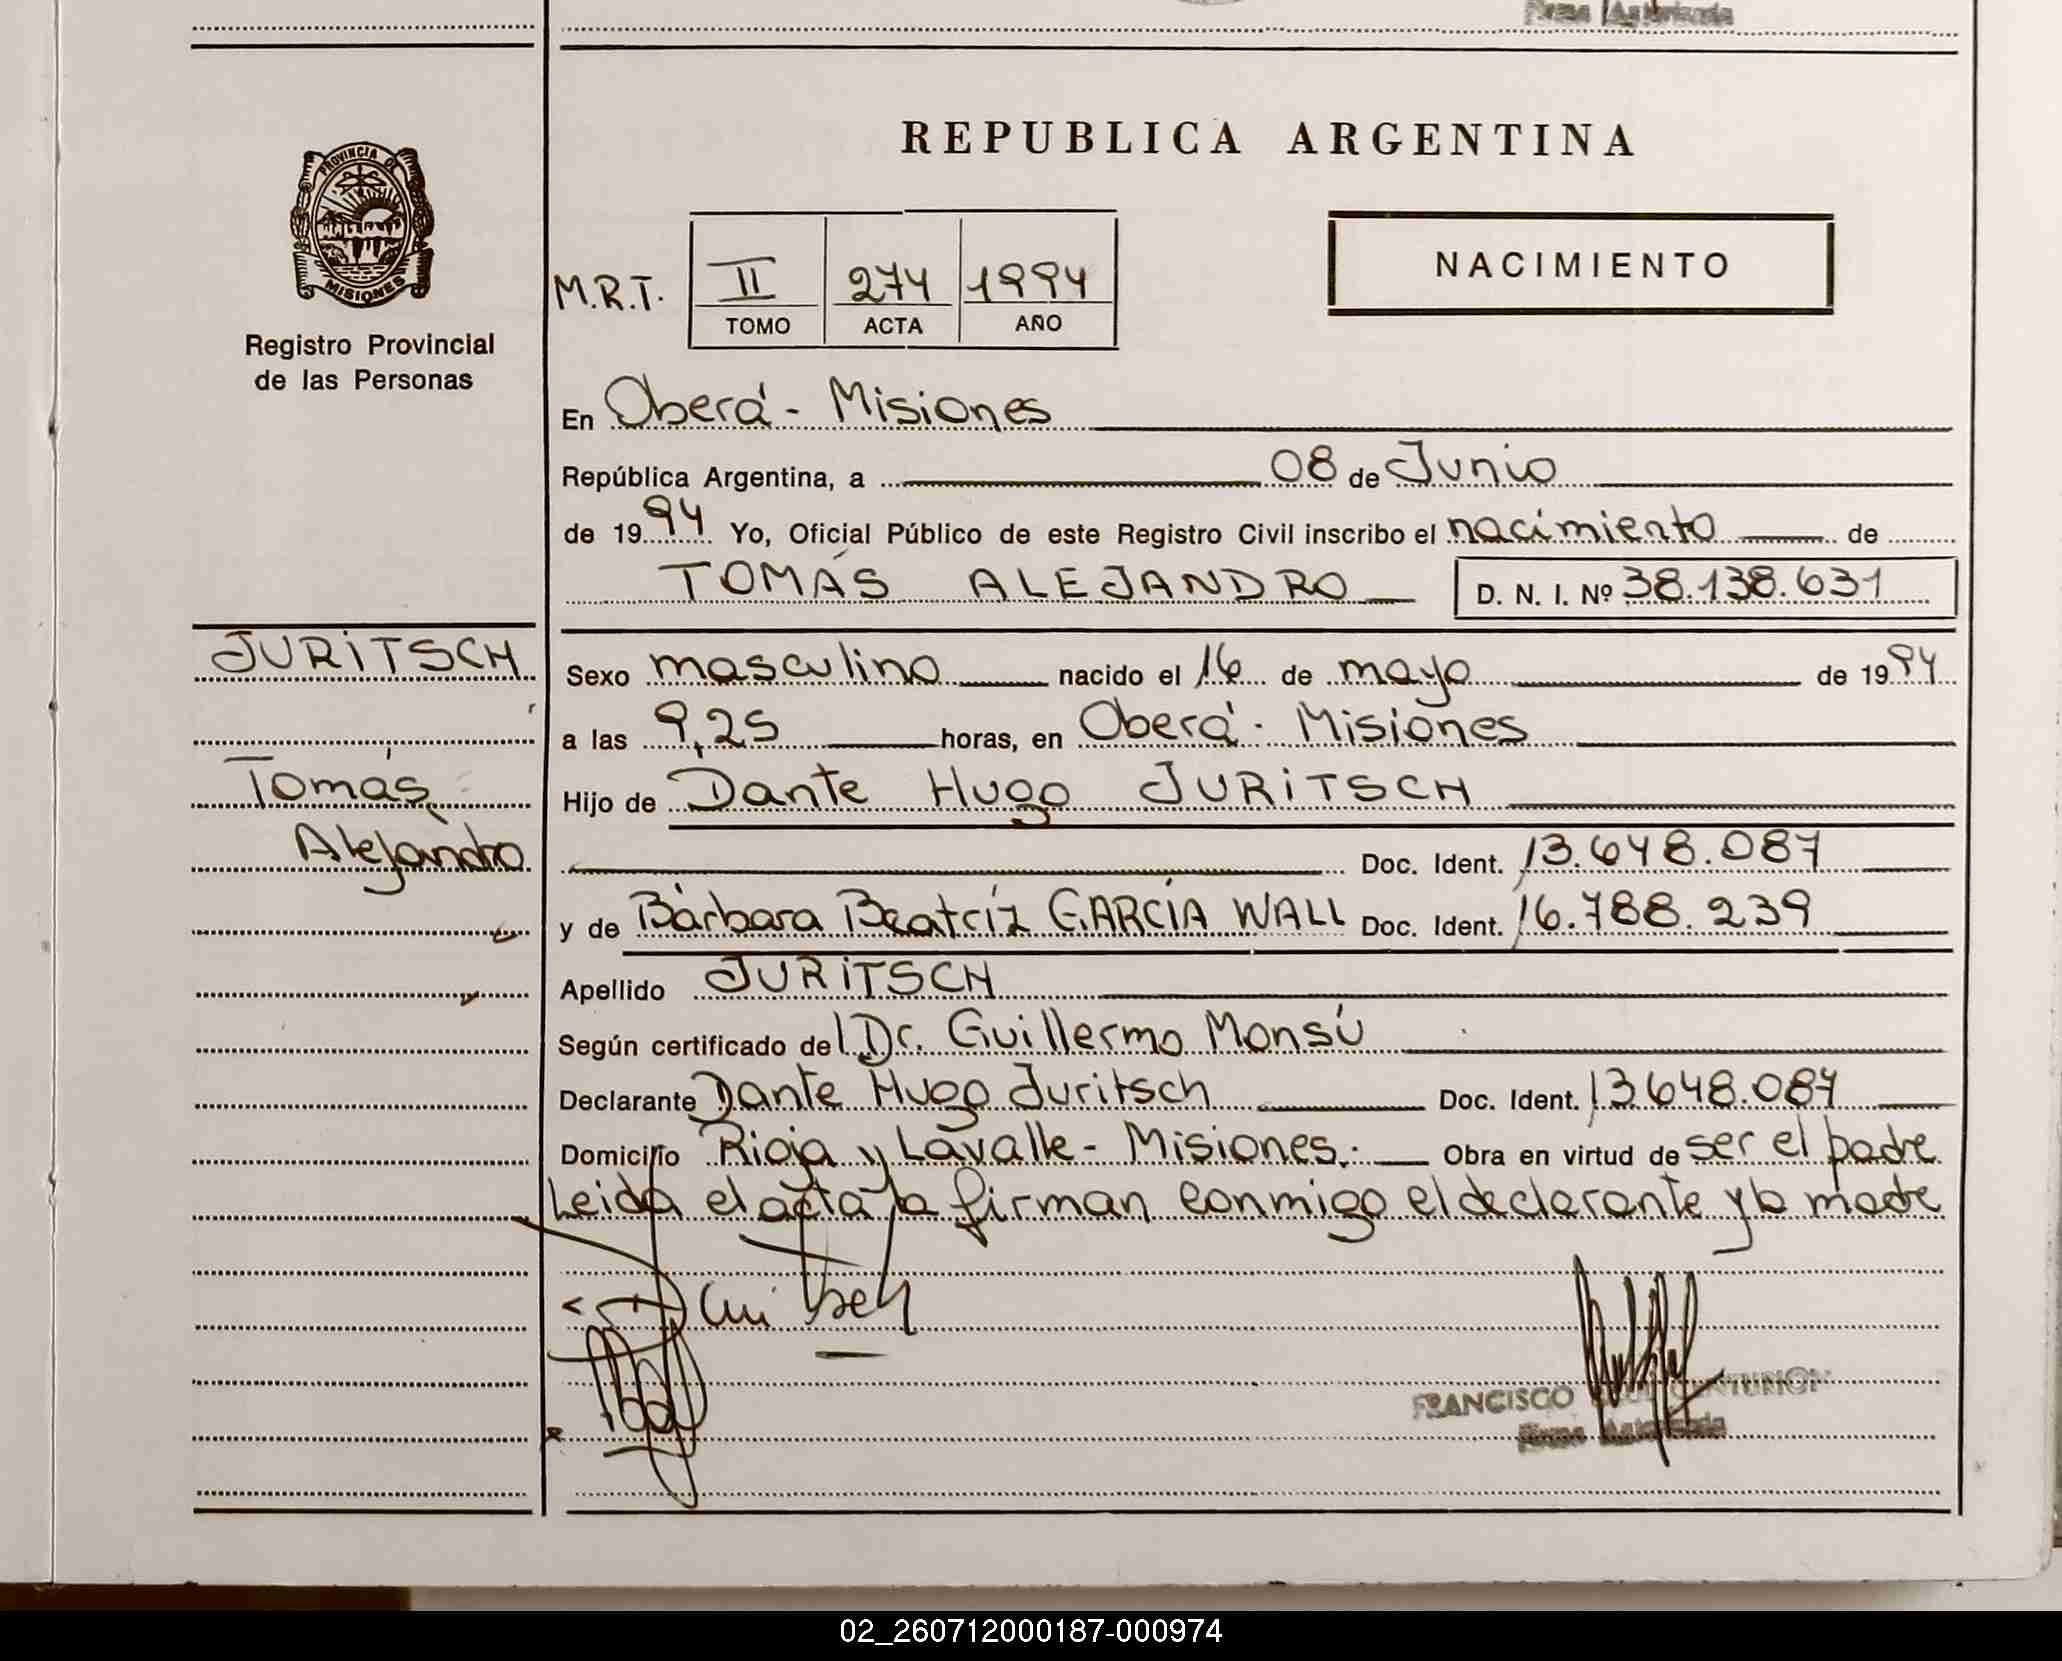 Firma Autorizada
PROVINCIA DE
MISIONES
Registro Provincial
de las Personas
REPUBLICA ARGENTINA
M.R.T. II 274 1994
TOMO ACTA AÑO
NACIMIENTO
En Oberá - Misiones
República Argentina, a 08 de Junio
de 1994 Yo, Oficial Público de este Registro Civil inscribo el nacimiento de
TOMÁS ALEJANDRO D. N. I. Nº 38.138.631
JURITSCH
Tomás
Alejandro
Sexo masculino nacido el 16 de mayo de 1994
a las 9,25 horas, en Oberá - Misiones
Hijo de Dante Hugo JURITSCH
Doc. Ident. 13.648.087
y de Bárbara Beatríz GARCÍA WALL Doc. Ident. 16.788.239
Apellido JURITSCH
Según certificado del Dr. Guillermo Monsú
Declarante Dante Hugo Juritsch Doc. Ident. 13.648.087
Domicilio Rioja y Lavalle - Misiones.- Obra en virtud de ser el padre
Leida el acta la firman conmigo el declarante y la madre
FRANCISCO CENTURION
Firma Autorizada
02_260712000187-000974